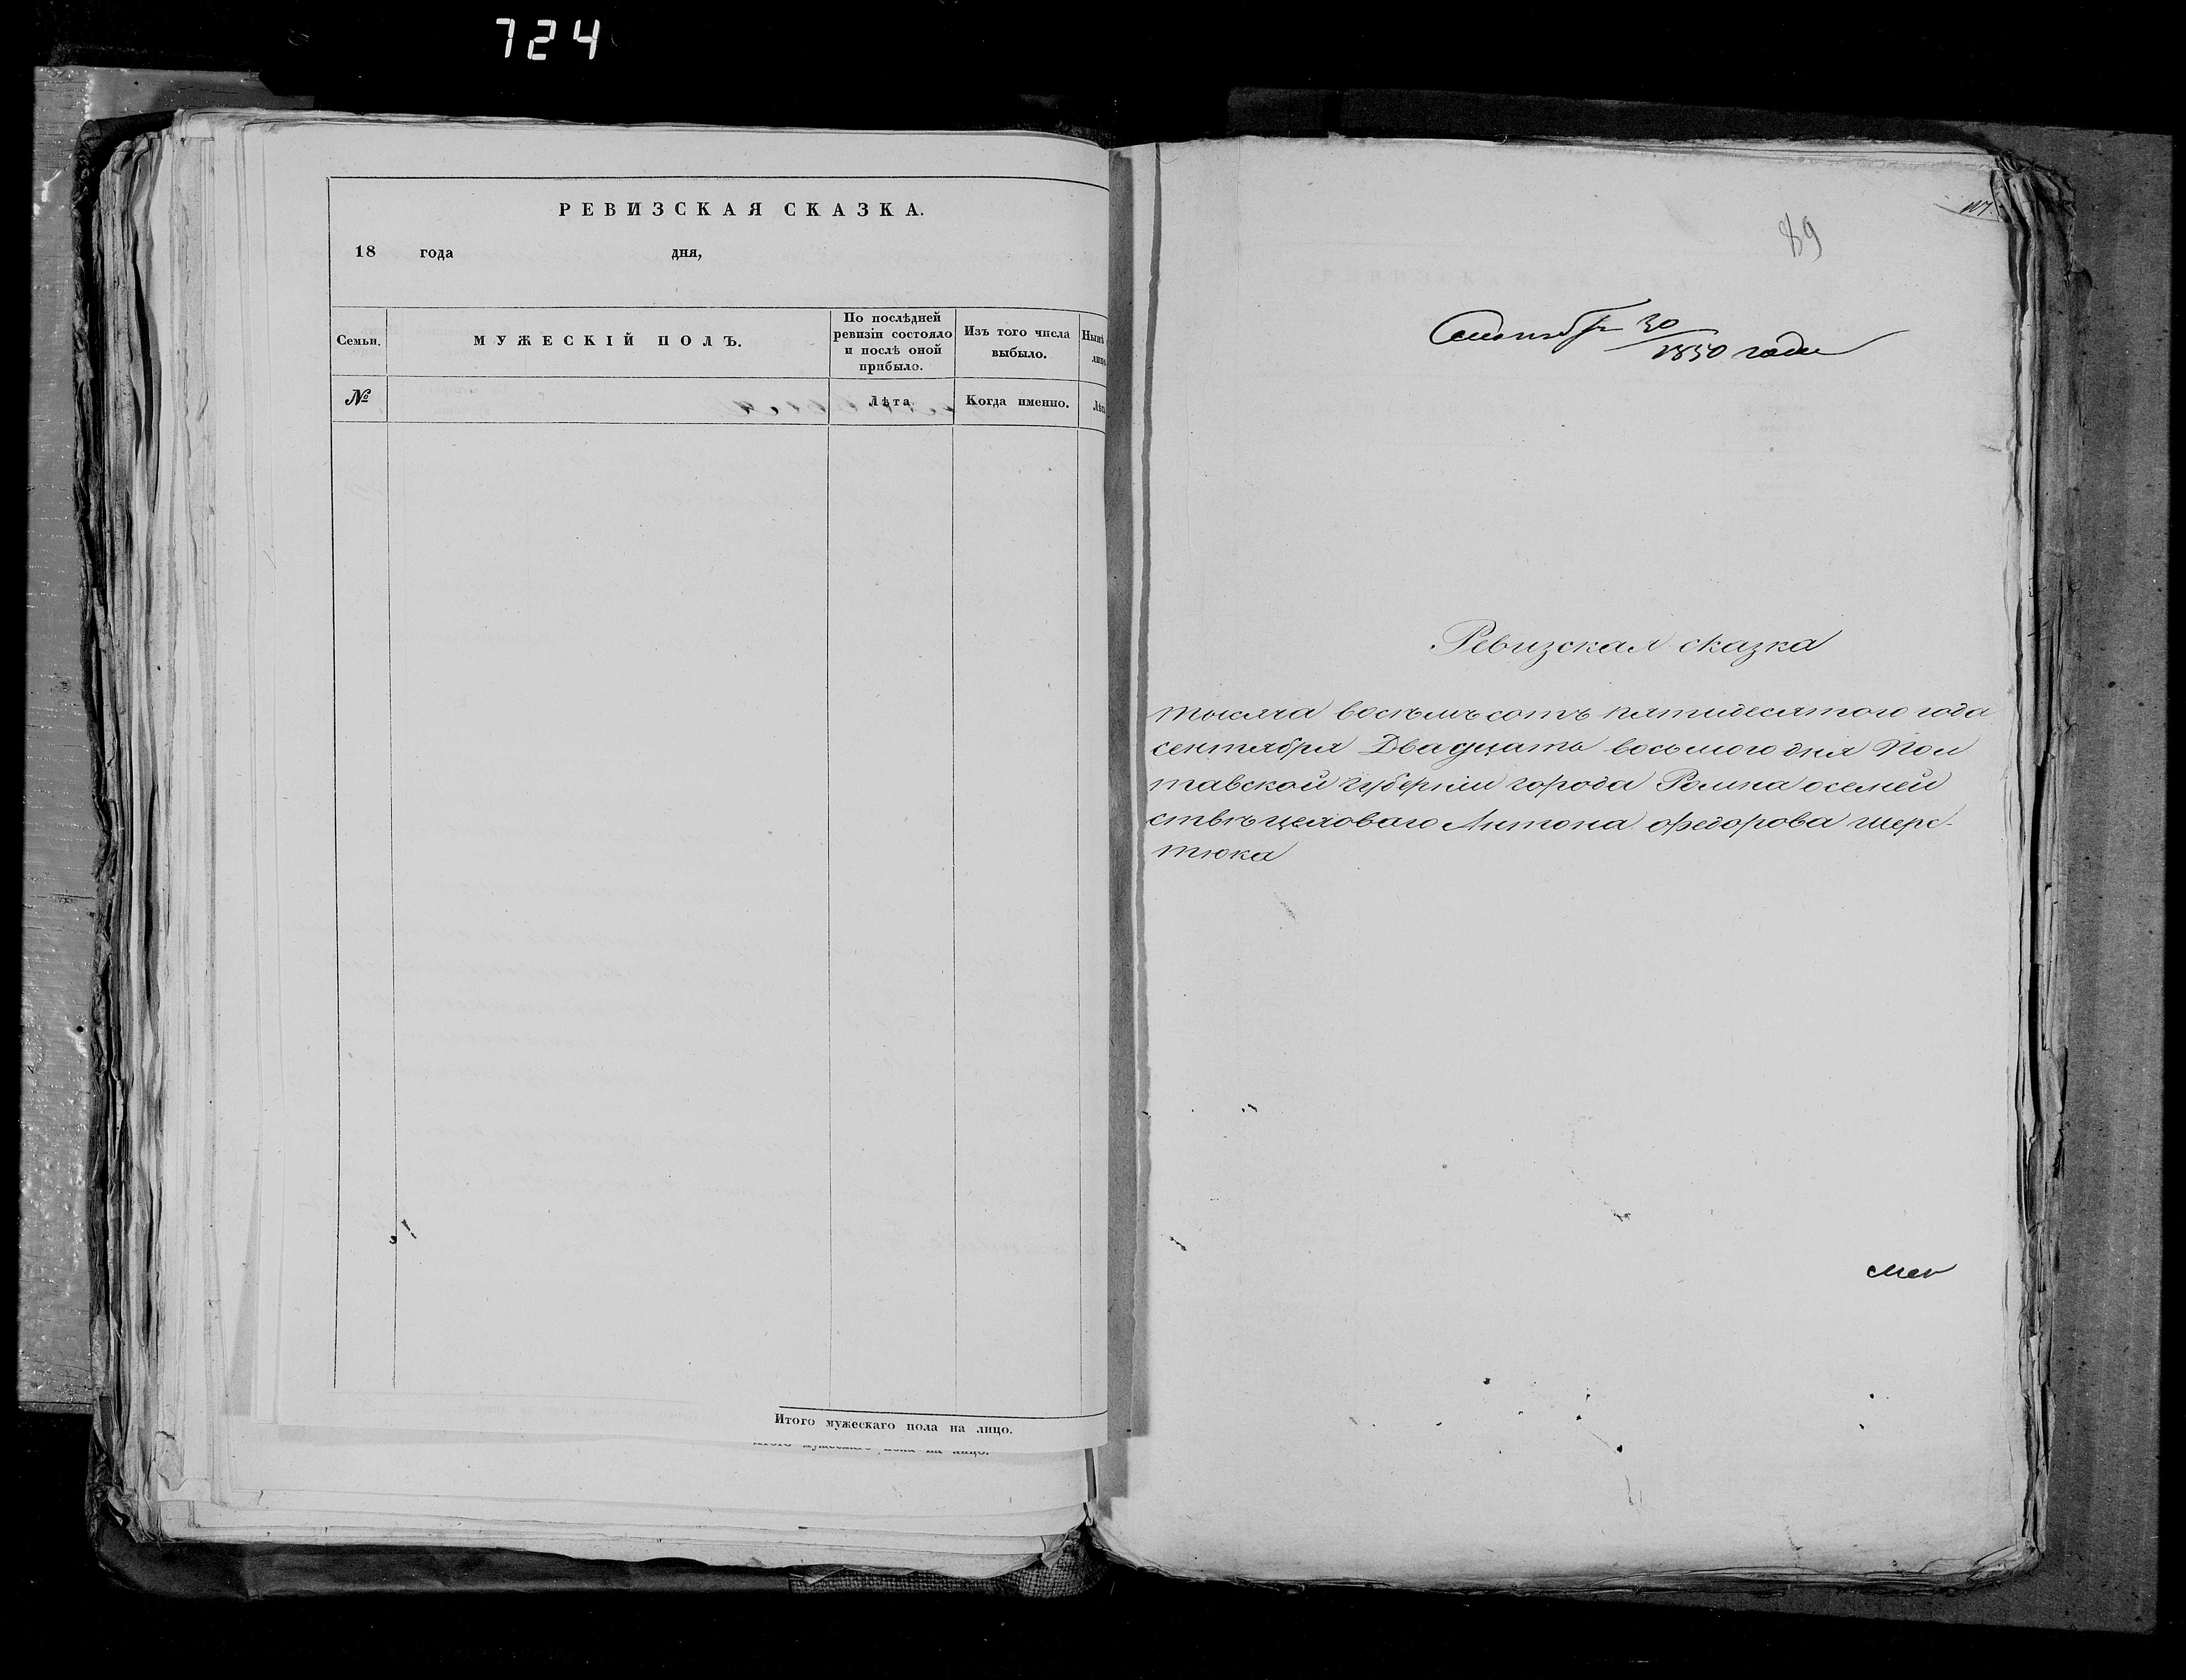 724
РЕВИЗСКАЯ СКАЗКА.
18 года дня,
Семьи.
МУЖЕСКІЙ ПОЛЪ.
По послѣдней
ревизіи состояло
и послѣ оной
прибыло.
Изъ того числа
выбыло.
Нынѣ
№
Лѣта
Когда именно.
Итого мужескаго пола на лицо.
Итого мужескаго пола на лицо.
89
Сентября 30
1850 года
Ревизская сказка
тысяча восѣмъ сотъ пятидесятого года
сентября Двадцать восьмого дня Пол
тавской губернии города Ромна осемей
ствѣ цеховаго Антона Федорова шерс-
тюка